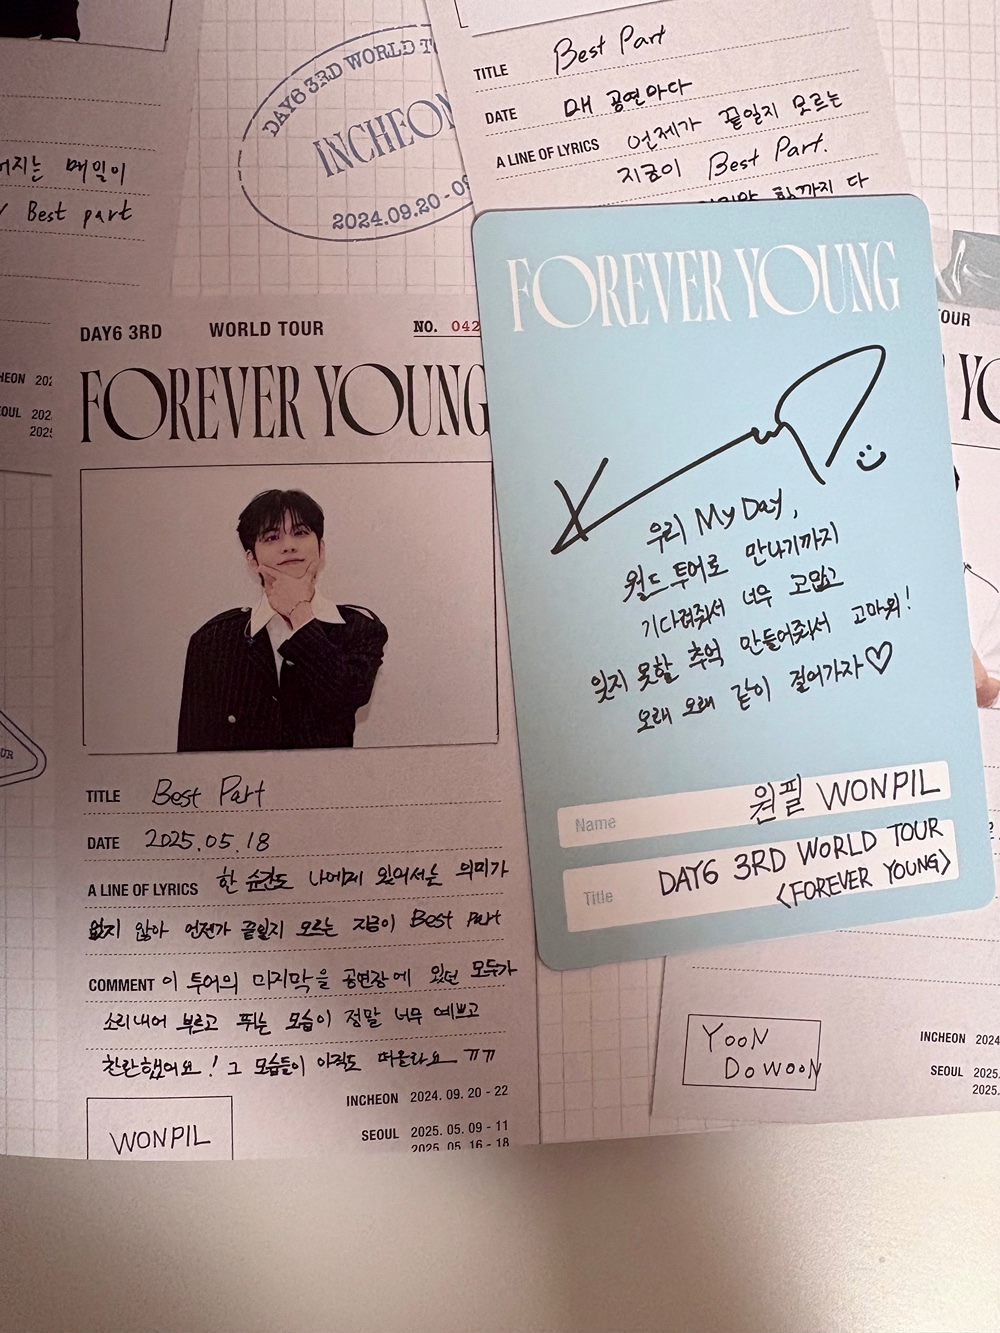 DAY6 3RD WORLD T
INCHEON
2024.09.20 - 0
TITLE Best Part
DATE 매 공연마다
A LINE OF LYRICS 언제가 끝일지 모르는
지금이 Best Part.
함까지 다
어지는 매일이
Best part
HEON 202
OUL 202
2025
DAY6 3RD WORLD TOUR NO. 042
FOREVER YOUNG
TITLE Best Part
DATE 2025.05.18
A LINE OF LYRICS 한 순간도 나에게 있어서는 의미가
없지 않아 언젠가 끝일지 모르는 지금이 Best Part
COMMENT 이 투어의 마지막을 공연장에 있던 모두가
소리내어 부르고 뛰는 모습이 정말 너무 예쁘고
찬란했어요! 그 모습들이 아직도 떠올라요 ㅠㅠ
WONPIL
INCHEON 2024. 09. 20 - 22
SEOUL 2025. 05. 09 - 11
2025. 05. 16 - 18
FOREVER YOUNG
우리 My Day,
월드투어로 만나기까지
기다려줘서 너무 고맙고
잊지 못할 추억 만들어줘서 고마워!
오래 오래 같이 걸어가자♡
Name 원필 WONPIL
Title DAY6 3RD WORLD TOUR
<FOREVER YOUNG>
OUR
YO
UR
YOON
DOWOON
INCHEON 2024
SEOUL 2025.
2025.